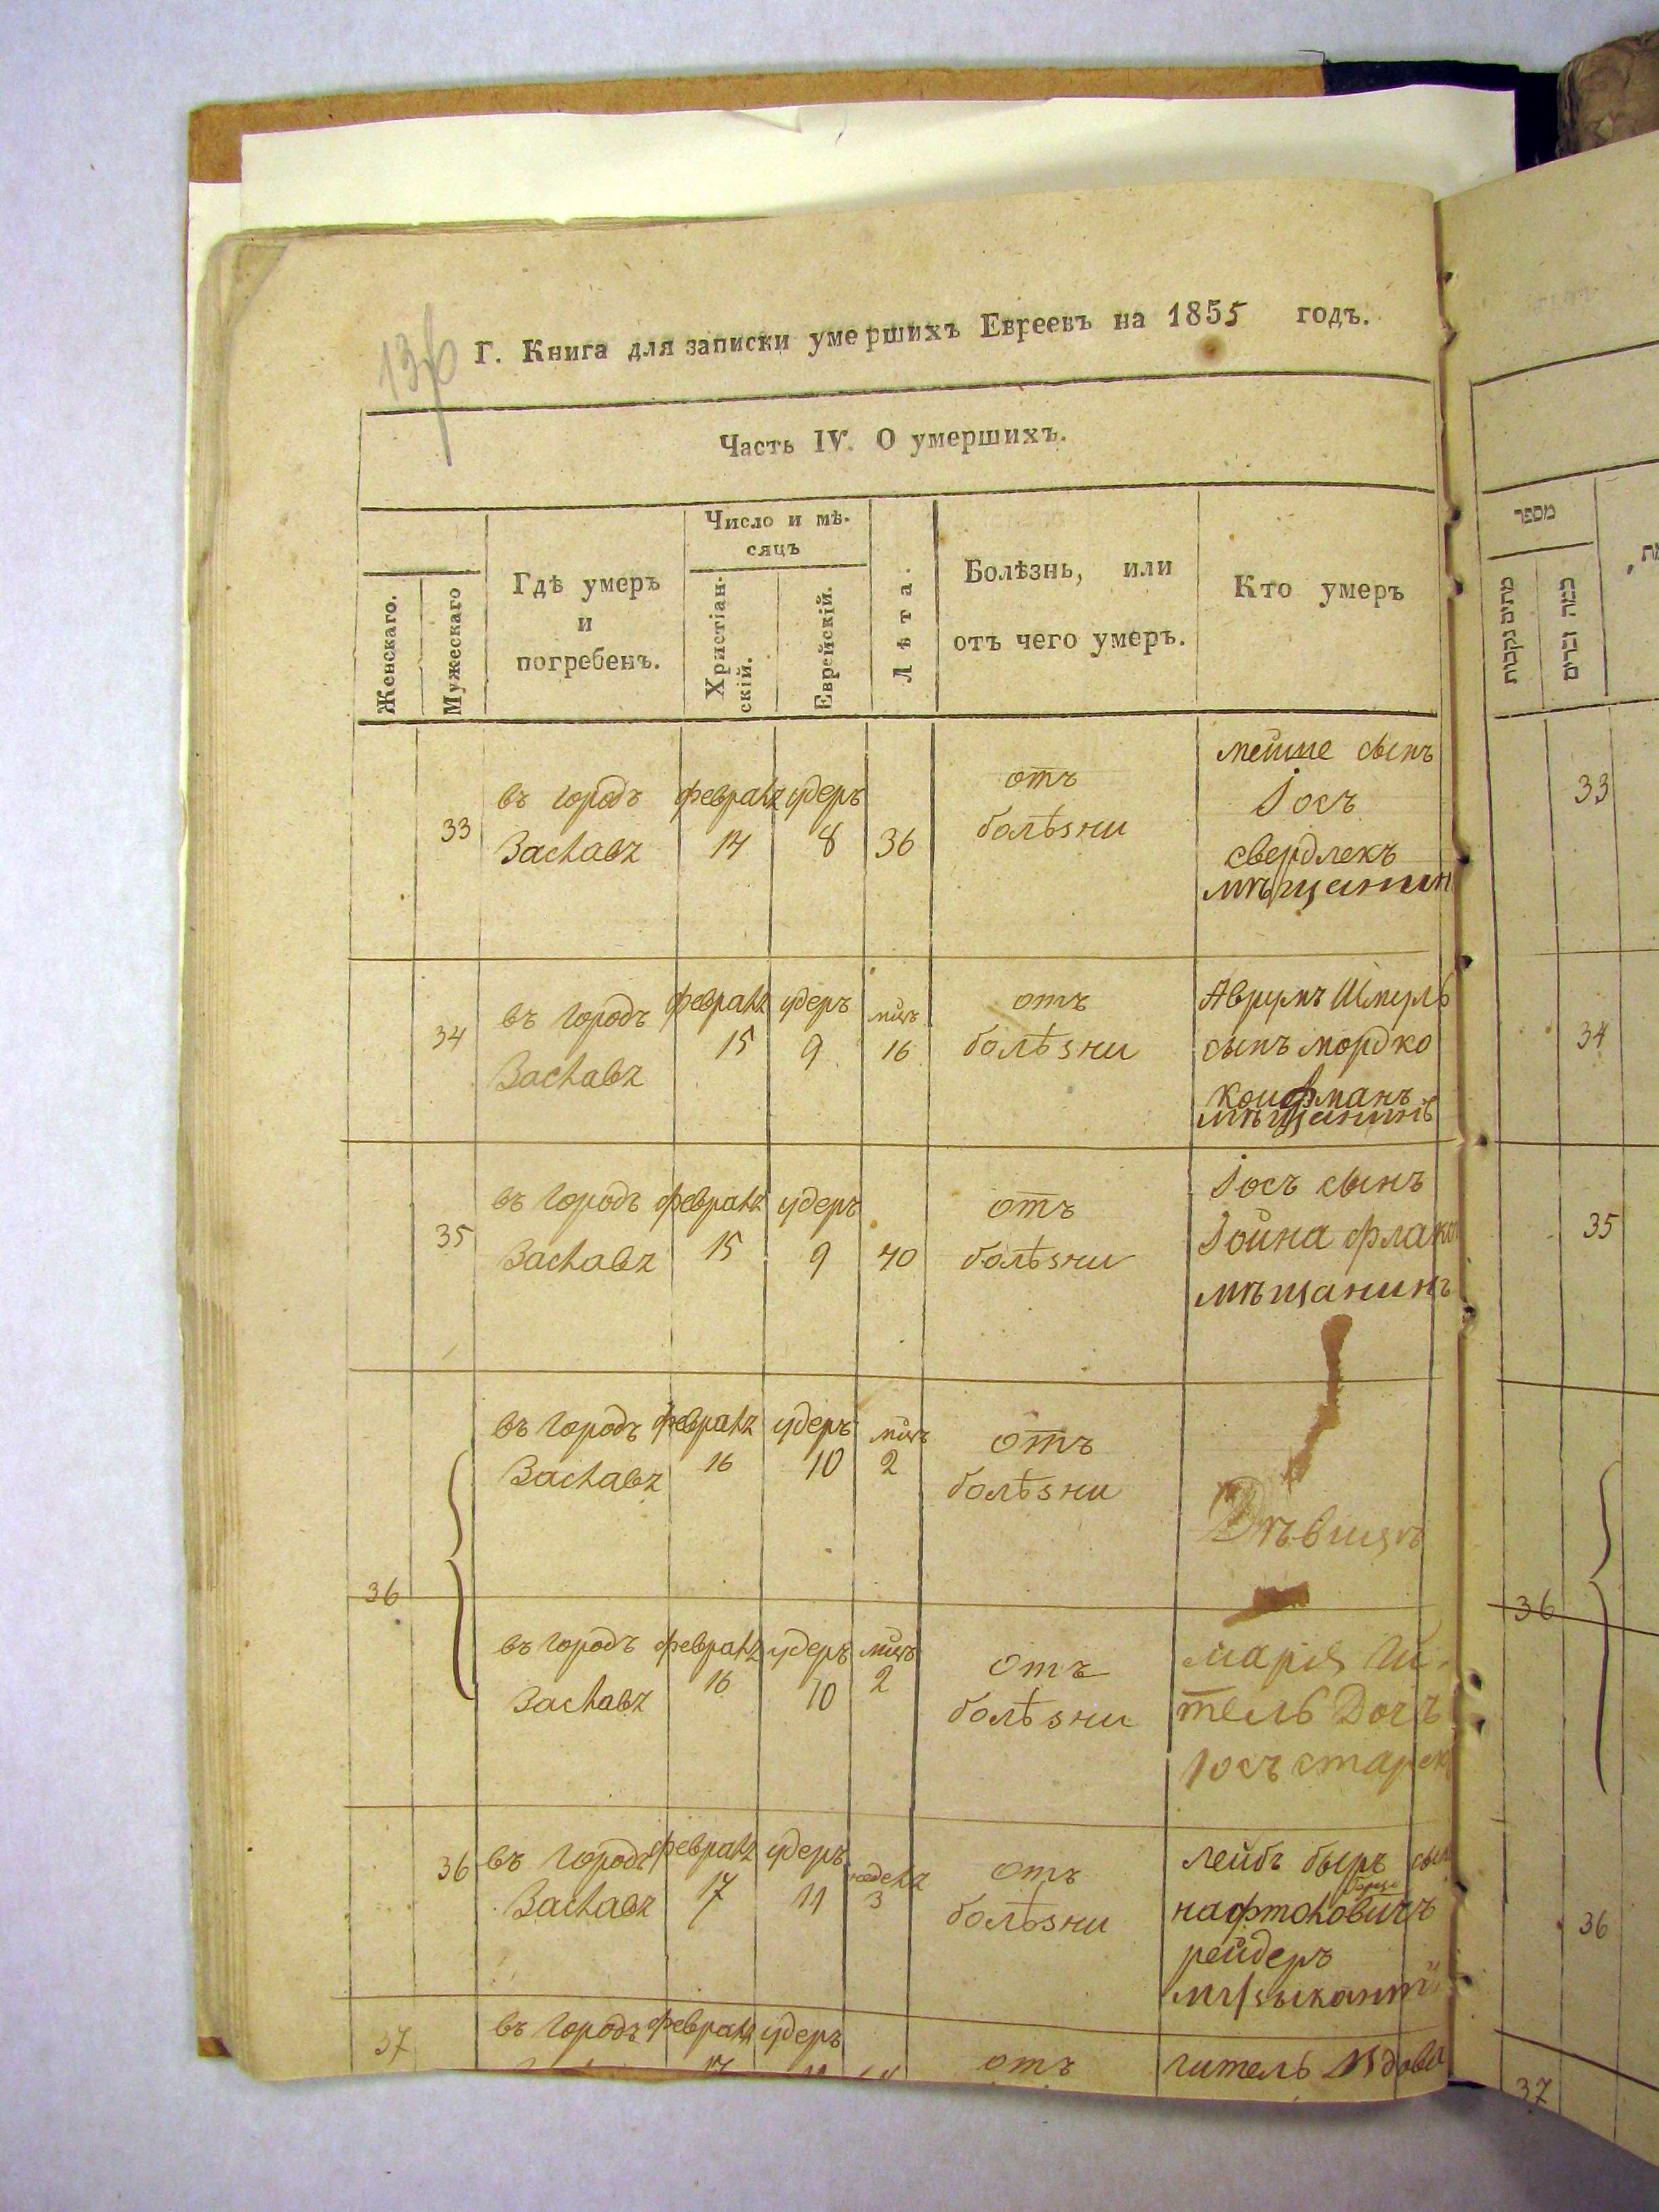 136
Г. Книга для записки умершихъ Евреевъ на 1855 годъ.
Часть IV. О умершихъ.
Женскаго.
Мужескаго
Гдѣ умеръ
и
погребенъ.
Число и мѣ-
сяцъ
Христіан-
скій.
Еврейскій.
Лѣта.
Болѣзнь, или
отъ чего умеръ.
Кто умеръ
מספר
מתים נקבות
כמה זכרים
33
въ городъ
Заславъ
февралъ
14
удеръ
8
36
отъ
болѣзни
мейше сынъ
Іосъ
свердлекъ
мѣщанин
33
34
въ городъ
Заславъ
февралъ
15
удеръ
9
мцъ
16
отъ
болѣзни
Аврумъ Шмуль
сынъ мордко
мѣщанинъ
34
35
въ городъ
Заславъ
февралъ
15
удеръ
9
40
отъ
болѣзни
Іосъ сынъ
Іойна
мѣщанинъ
35
36
въ городъ
Заславъ
февралъ
16
удеръ
10
мцъ
2
отъ
болѣзни
въ городъ
Заславъ
февралъ
16
удеръ
10
мцъ
2
отъ
болѣзни
марія Ги-
тель Дочъ
Іосъ
36
36
въ городъ
Заславъ
февралъ
17
удеръ
11
3
отъ
болѣзни
лейбъ беръ сын
нафтоковичъ
рейдеръ
музыкантъ
36
37
въ городъ
февралъ
17
удеръ
отъ
гитель вдова
37